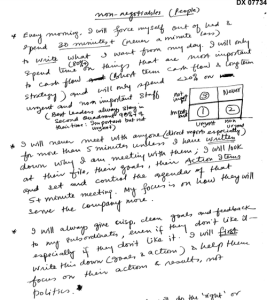 DX 07734
non-negotiables (People)
* Every morning, I will force myself out of bed &
spend 30 minutes+ (never a minute less)
to write what I want from my day. I will only
(80%)
spend time on things that are most important
to cash flow (short term cash flow & long term
strategy) and will only spend <20% on
urgent and non important stuff
(Best leaders always stay in
Second Quadrant 90% of
their time: Important but not
urgent)
Never
①
②
Urgent
Non
urgent
* I will never meet with anyone (direct reports especially)
for more than 5 minutes unless I have written
down why I am meeting with them; I will look
at their file, their goals, their Action Items
and set and control the agenda of that
5+ minute meeting. My focus is on how they will
serve the company more.
* I will always give crisp, clean goals and feedback
to my subordinates, even if they don't like it—
especially if they don't like it. I will first
write this down (goals & action) & help them
focus on their actions & results, not
politics.
do the 'right' or